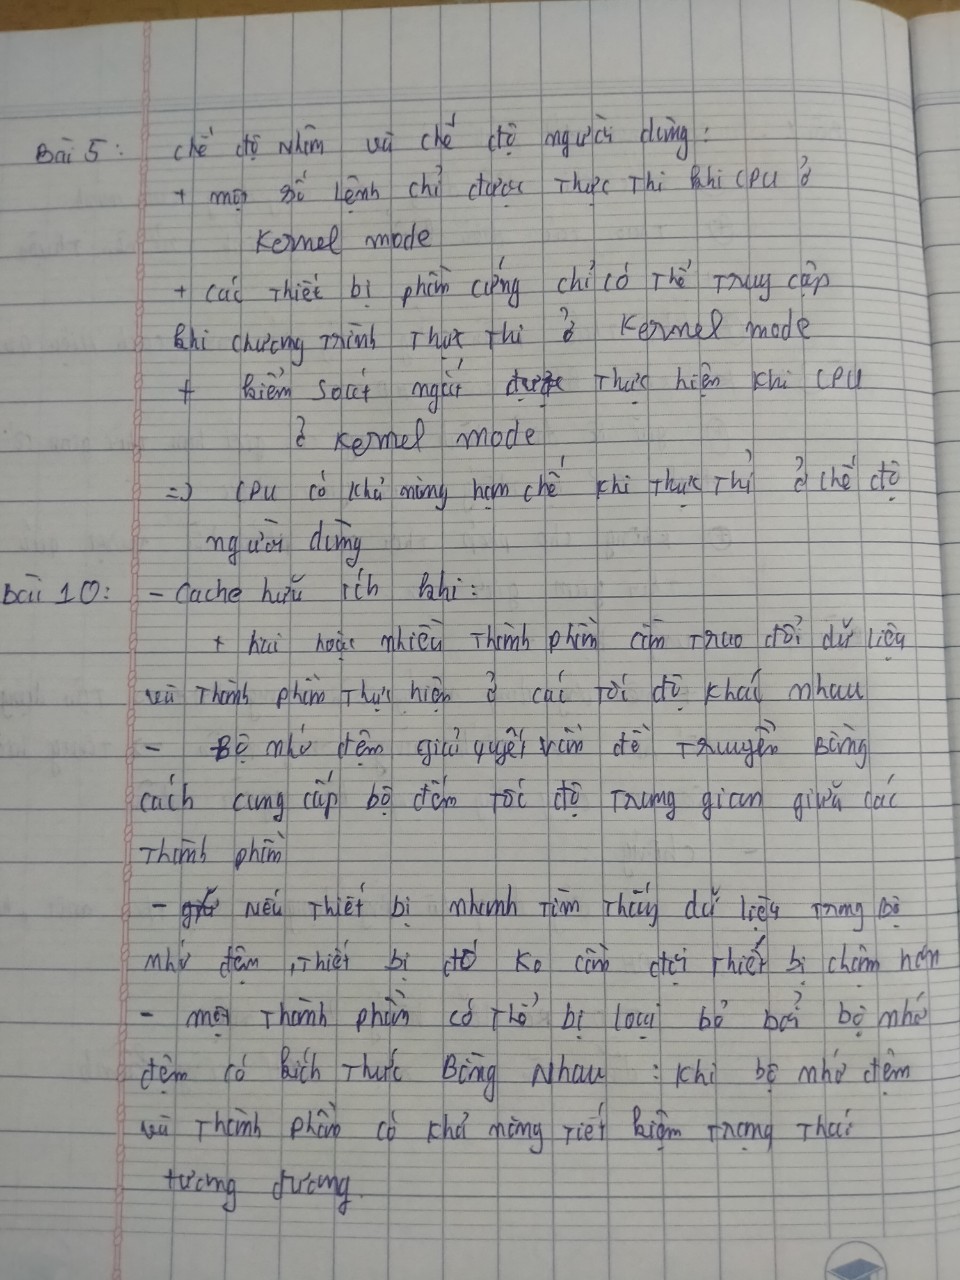 Bài 5: chế độ nhân và chế độ người dùng:
+ một số lệnh chỉ được thực thi khi CPU ở
Kernel mode
+ các thiết bị phần cứng chỉ có thể truy cập
khi chương trình thực thi ở Kernel mode
+ kiểm soát ngắt được thực hiện khi CPU
ở Kernel mode
=> CPU có khả năng hạn chế khi thực thi ở chế độ
người dùng
Bài 10: - Cache hữu ích khi:
+ hai hoặc nhiều thành phần cần trao đổi dữ liệu
và thành phần thực hiện ở các tốc độ khác nhau
- Bộ nhớ đệm giải quyết vấn đề truyền bằng
cách cung cấp bộ đếm tốc độ trung gian giữa các
thành phần
- nếu thiết bị nhanh tìm thấy dữ liệu trong bộ
nhớ đệm, thiết bị đó ko cần đợi thiết bị chậm hơn
- một thành phần có thể bị loại bỏ bởi bộ nhớ
đệm có kích thước bằng nhau: khi bộ nhớ đệm
và thành phần có khả năng tiết kiệm trạng thái
tương đương.